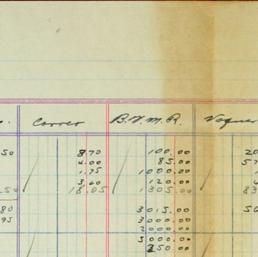 Correo B. V. M. R.
50 8.70 100.00 20
4.00 85.00 57
1.75 1000.00
3.60 120.00
50 18.05 1305.00 83
80 3015.00 50
95 3000.00
2000.00
5000.00
250.00